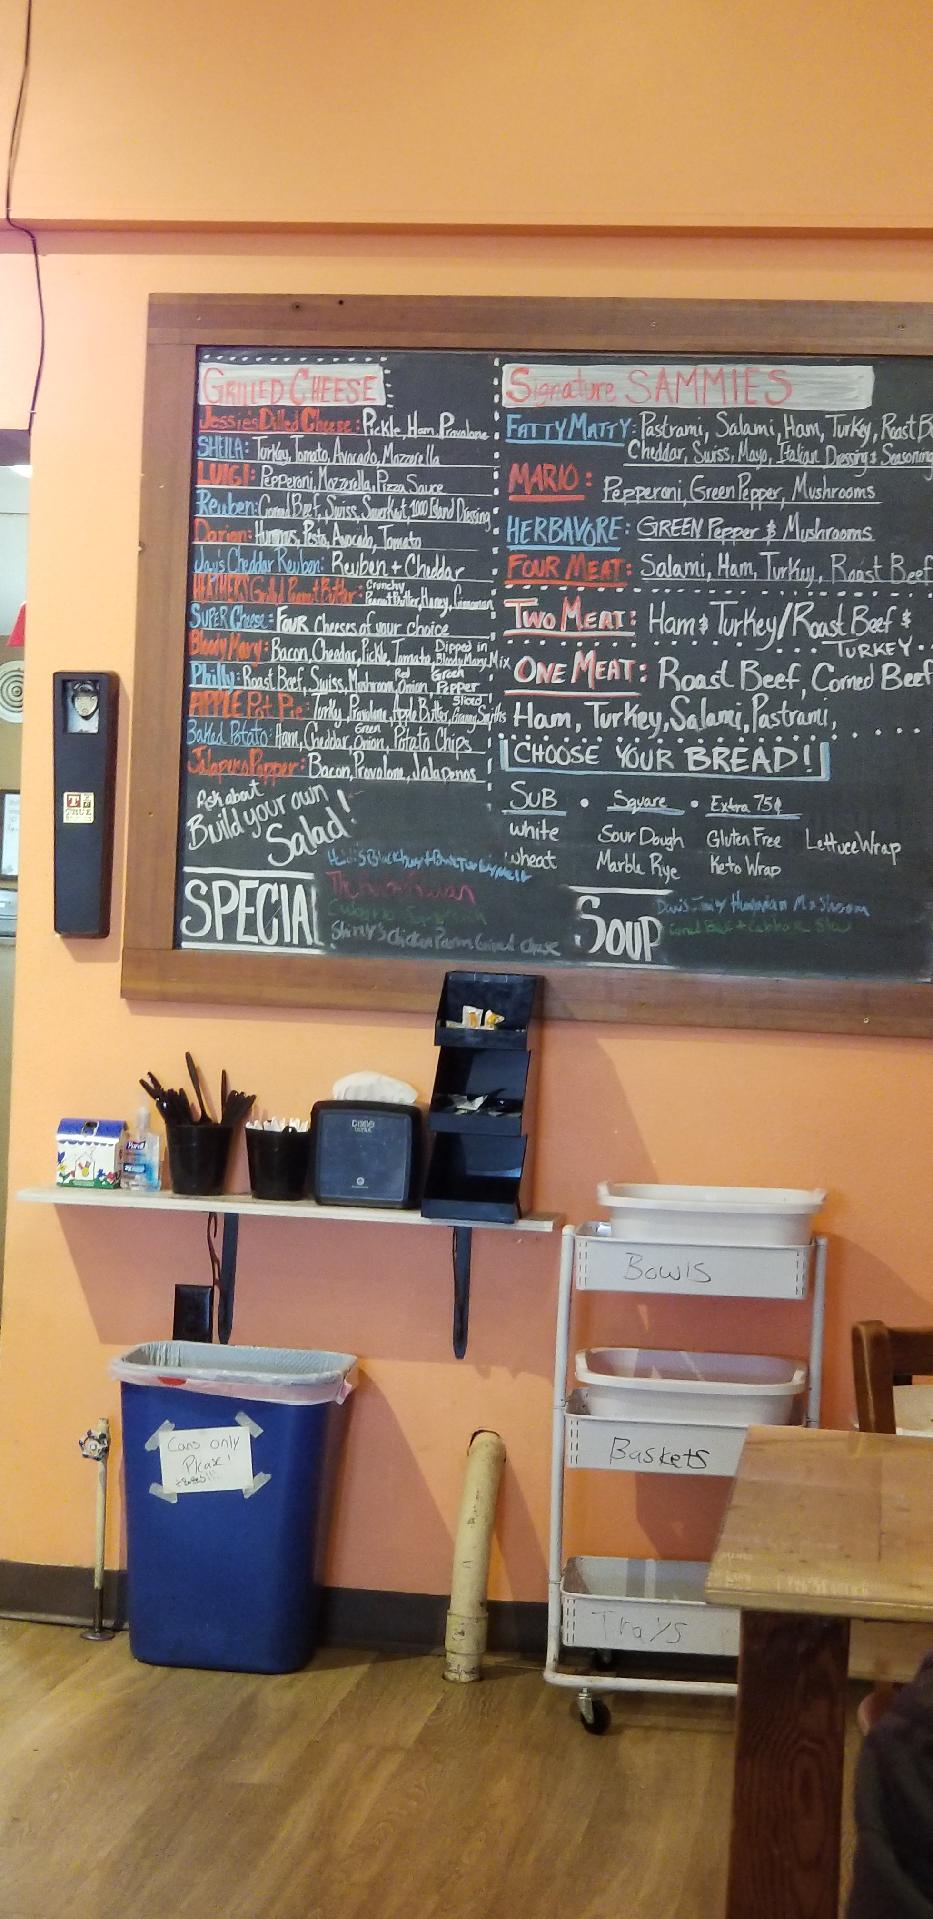 GRILLED CHEESE
Jessie's Dilled Cheese: Pickle, Ham, Provolone
SHEILA: Turkey, Tomato, Avocado, Mozzarella
LUIGI: Pepperoni, Mozzerella, Pizza Sauce
Reuben: Corned Beef, Swiss, Saurkraut, 1000 Island Dressing
Dorian: Hummus, Pesto, Avocado, Tomato
Jay's Cheddar Reuben: Reuben + Cheddar
HEATHER'S Grilled Peanut Butter: Crunchy Peanut Butter, Honey, Cinnamon
SUPER Cheese: FOUR cheeses of your choice
Bloody Mary: Bacon, Chedar, Pickle, Tomato, Dipped in Bloody Mary Mix
Philly: Roast Beef, Swiss, Mushroom, Red Onion, Green Pepper
APPLE Pot Pie: Turkey, Provolone, Apple Butter, Sliced Granny Smiths
Baked Potato: Ham, Cheddar, Green Onion, Potato Chips
Jalapeno Popper: Bacon, Provolone, Jalapenos
Ask about
Build your own
Salad!
SPECIAL
Signature SAMMIES
FATTY MATTY: Pastrami, Salami, Ham, Turkey, Roast B
Cheddar, Swiss, Mayo, Italian Dressing & Seasoning
MARIO: Pepperoni, Green Pepper, Mushrooms
HERBAVORE: GREEN Pepper & Mushrooms
FOUR MEAT: Salami, Ham, Turkey, Roast Beef
TWO MEAT: Ham & Turkey/Roast Beef &
TURKEY
ONE MEAT: Roast Beef, Corned Beef
Ham, Turkey, Salami, Pastrami,
CHOOSE YOUR BREAD!
SUB • Square • Extra 75¢
white Sour Dough Gluten Free Lettuce Wrap
wheat Marble Rye Keto Wrap
SOUP
Hungarian Mushroom
Purell
Cans only
Please!
Bowls
Baskets
Trays